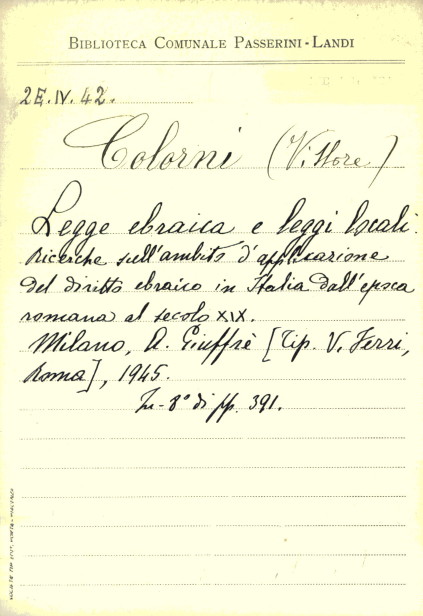 BIBLIOTECA COMUNALE PASSERINI-LANDI
2E.IV.42.
Colorni (Vittore)
Legge ebraica e leggi locali.
Ricerche sull'ambito d'applicazione
del diritto ebraico in Italia dall'epoca
romana al secolo XIX.
Milano, A. Giuffrè [Tip. V. Ferri,
Roma], 1945.
In-8° di pp. 391.